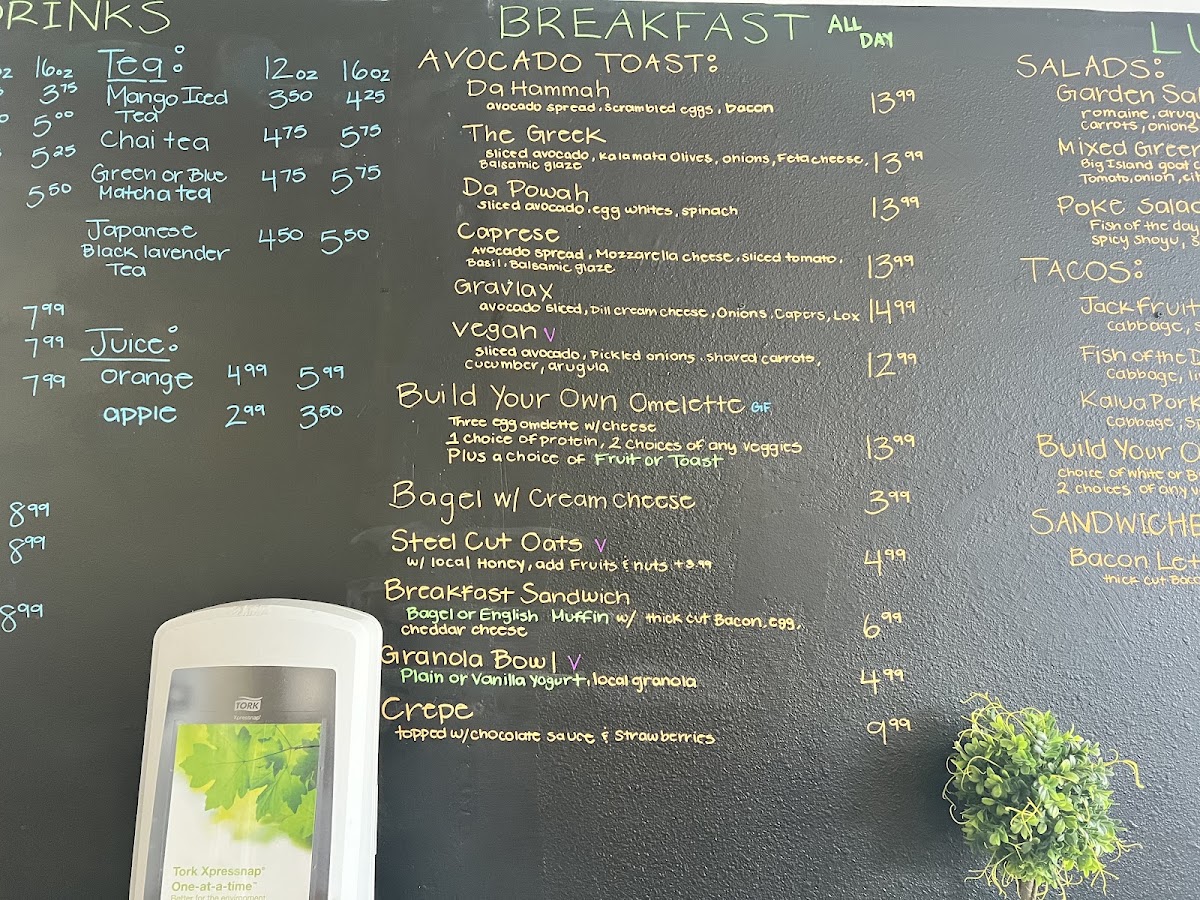 DRINKS
16oz
3.75
5.00
5.25
5.50
7.99
7.99
7.99
8.99
8.99
8.99
Tea: 12oz 16oz
Mango Iced Tea 3.50 4.25
Chai tea 4.75 5.75
Green or Blue
Matcha tea 4.75 5.75
Japanese
Black lavender
Tea 4.50 5.50
Juice:
orange 4.99 5.99
apple 2.99 3.50
BREAKFAST ALL DAY
AVOCADO TOAST:
Da Hammah 13.99
avocado spread, scrambled eggs, bacon
The Greek
sliced avocado, Kalamata Olives, onions, Feta cheese, 13.99
Balsamic glaze
Da Powah 13.99
sliced avocado, egg whites, spinach
Caprese
Avocado spread, Mozzarella cheese, sliced tomato, 13.99
Basil, Balsamic glaze
Gravlax
avocado sliced, Dill cream cheese, Onions, Capers, Lox 14.99
vegan V
sliced avocado, Pickled onions, shared carrots, 12.99
cucumber, arugula
Build Your Own Omelette GF
Three egg omelette w/cheese
1 choice of protein, 2 choices of any veggies 13.99
Plus a choice of Fruit or Toast
Bagel w/ Cream cheese 3.99
Steel Cut Oats V 4.99
w/ local Honey, add Fruits & nuts +3.99
Breakfast Sandwich
Bagel or English Muffin w/ thick cut Bacon, egg, 6.99
cheddar cheese
Granola Bowl V 4.99
Plain or Vanilla Yogurt, local granola
Crepe 9.99
topped w/chocolate sauce & Strawberries
SALADS:
Garden
romaine,
carrots, onions
Mixed
Big Island goat
Tomato, onion,
Poke
Fish of the day
spicy shoyu,
TACOS:
Jackfruit
cabbage,
Fish of the
cabbage,
Kalua Pork
cabbage,
Build Your
choice of white or
2 choices of any
Bacon
thick cut
TORK
Xpressnap®
Tork Xpressnap®
One-at-a-time™
Better for the environment